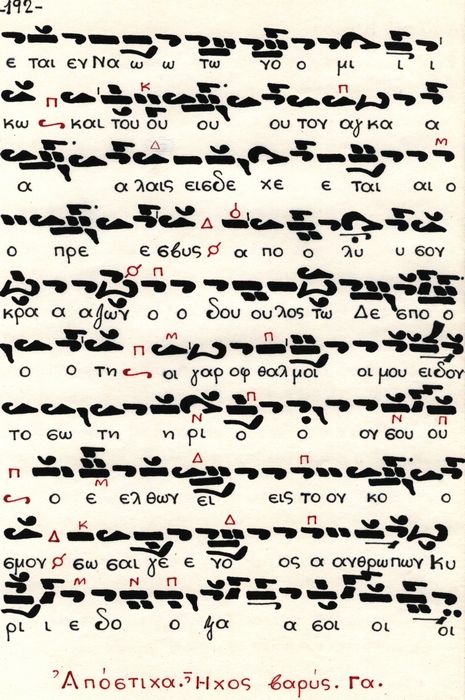 -192-
ε ται εν Να ω ω τω γο ο μι ι ι
Κ Π
κω Π και του ου ου ου τον αγ κα α
Δ Μ
α α λαις εισ δε χε ε ται αι ο
ο πρε ε σβυς Δ α πο ο λυ υ σον
Π
κρα α α ζων ο ο δου ου λος τω Δε σπο ο
Μ Π
ο ο τη Π οι γαρ οφ θαλ μοι οι μου ειδον
Ν Π Ν Π
το σω τη η ρι ο ο ον σου ου
Π Μ Δ Π
ο ε ελ θων ει εις το ον κο ο
Κ Δ Π
σμον Δ σω σαι γε ε νο ος α ανθρωπων Κυ
Μ Ν Π
ρι ι ε δο ο ξα α σοι οι οι
Ἀπόστιχα. Ἦχος βαρύς. Γα.